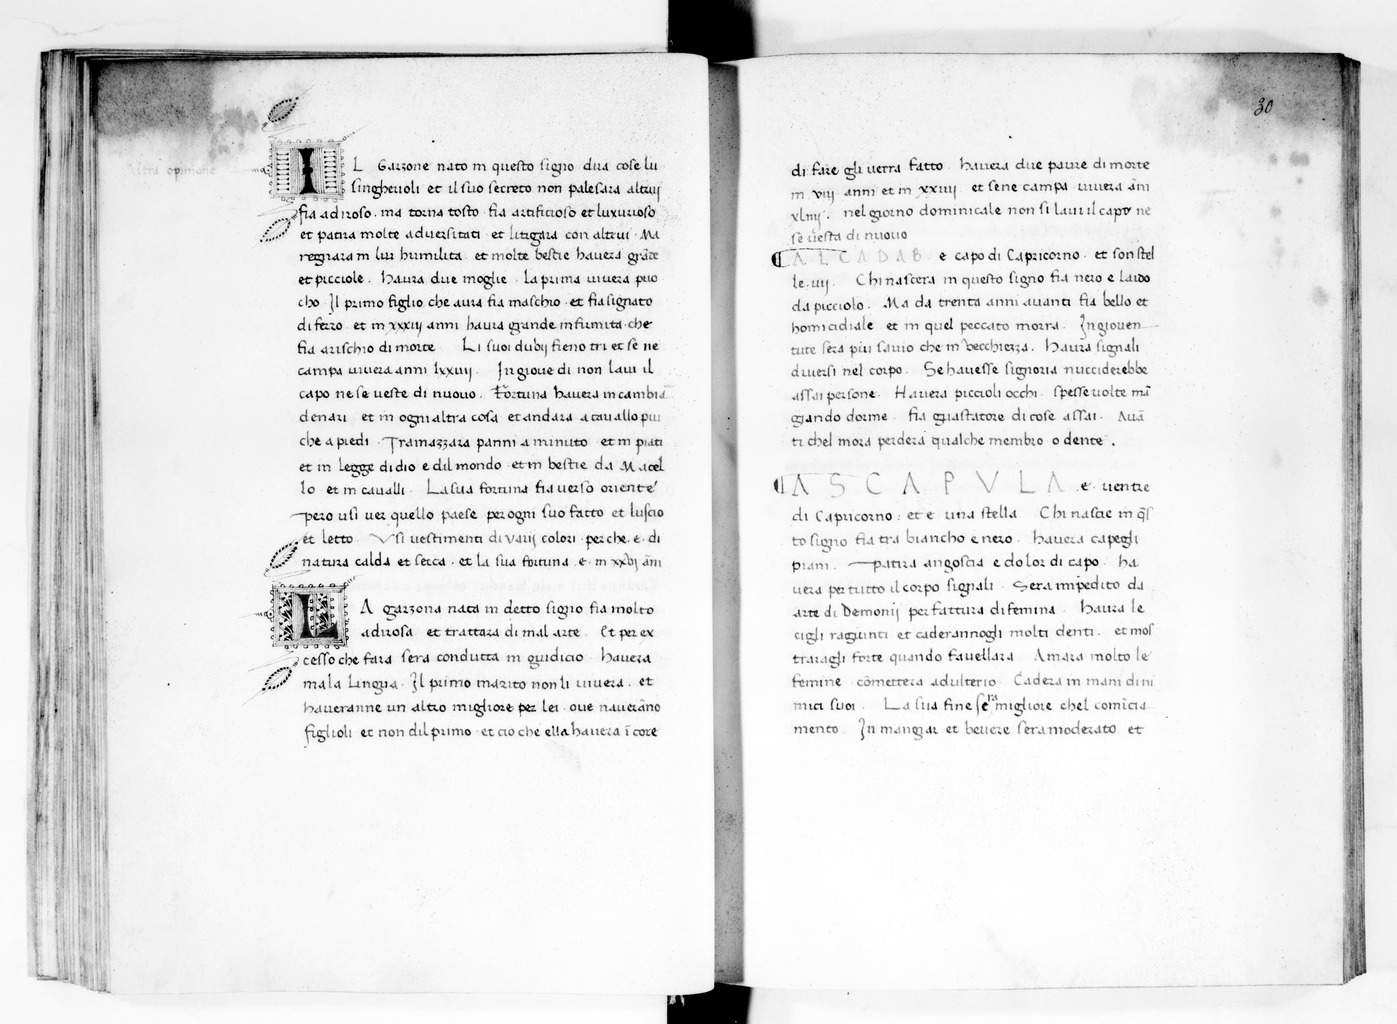 Altra opinione
IL Garzone nato in questo signo dira cose lu
singheuoli et il suo secreto non palesara altruj
fia adiroso. ma torna tosto. fia artificioso et luxurioso
et patira molte aduersitati et litigara con altrui. Ma
regnara in lui humilita. et molte bestie hauera grãde
et picciole. Haura due moglie. la prima uiuera puo
cho Il primo figlio che aura fia maschio. et fia signato
di ferro. et in xxxiij anni haura grande infirmita. che
fia arischio di morte. Li suoi dubij fieno tri et se ne
campa uiuera anni lxxuij. In gioue di non laui il
capo ne se ueste di nuouo. Fortuna hauera in cambiã
denari. et in ogni altra cosa et andara a cauallo piu
che a piedi. Tramazzara panni a minuto et in prati
et in legge di dio e dil mondo. et in bestie da Macel
lo et in caualli. La sua fortuna fia uerso oriente
pero usi uer quello paese per ogni suo fatto et luscio
et letto. Vsi uestimenti di varij colori. per che. e. di
natura calda et secca. et la sua fortuna. e. in xxvj ãni
LA garzona nata in detto signo fia molto
adirosa et trattara di mal arte. Et per ex
cesso che fara sera condutta in giudicio. hauera
mala Lingua. Il primo marito non li uiuera. et
haueranne un altro migliore per lei. oue nauerãno
figlioli et non dil primo. et cio che ella hauera ĩ core
30
di fare gli uerra fatto. hauera due paure di morte
in viij anni et in xxiiij et sene campa uiuera ãni
xliiij. nel giorno dominicale non si laui il capo ne
se uesta di nuouo
ALCADAB. e capo di Capricorno. et son stel
le. uij. Chi nascera in questo signo fia nero e laido
da picciolo. Ma da trenta anni auanti fia bello et
homicidiale et in quel peccato morra. In giouen
tute sera piu sauio che in vecchiezza. Haura signali
diuersi nel corpo. Se hauesse signoria nucciderebbe
assai persone. Hauera piccioli occhi. spesse uolte mã
giando dorme. fia guastatore di cose assai. Auã
ti chel mora perdera qualche membro o dente.
ASCAPVLA. e. uentre
di Capricorno: et e una stella Chi nascie in q̃s
to signo fia tra biancho e nero. hauera capegli
piani. patira angostia e dolor di capo. ha
uera per tutto il corpo signali. Sera impedito da
arte di Demonij per fattura di femina. Haura le
cigli ragiunti et caderannogli molti denti. et mos
traragli forte quando fauellara Amara molto le
femine cõmettera adulterio. Cadera in mani di ni
mici suoi. La sua fine sera migliore chel comĩcia
mento. In mangiar et beuere sera moderato et